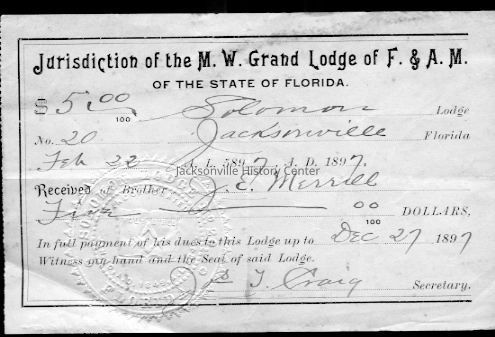 Jurisdiction of the M. W. Grand Lodge of F. & A. M.
OF THE STATE OF FLORIDA.
$5.00/100 Solomon Lodge
No. 20 Jacksonville Florida
Feb 22 A. L. 5897, A. D. 1897.
Jacksonville History Center
Received of Brother J. E. Merrill
Five 00/100 DOLLARS,
In full payment of his dues to this Lodge up to Dec 27 1897
Witness my hand and the Seal of said Lodge.
T. Craig Secretary.